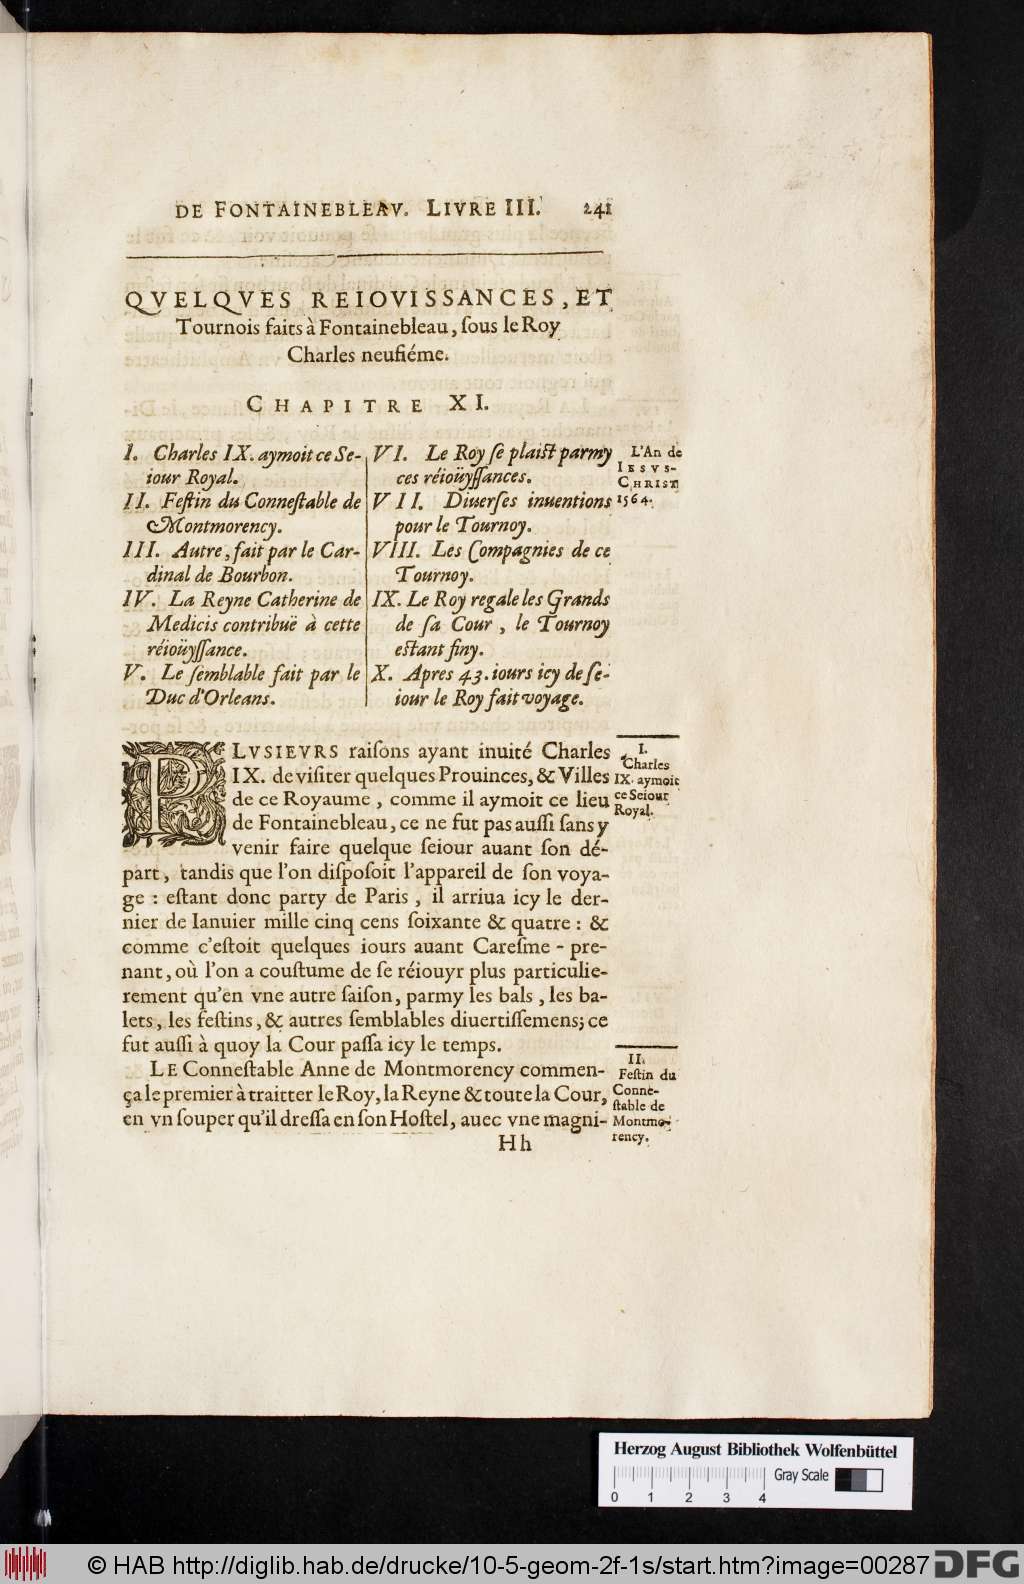 DE FONTAINEBLEAV. LIVRE III. 241
QVELQVES REIOVISSANCES, ET
Tournois faits à Fontainebleau, ſous le Roy
Charles neufiéme.
CHAPITRE XI.
I. Charles IX. aymoit ce Se-
iour Royal.
II. Feſtin du Conneſtable de
Montmorency.
III. Autre, fait par le Car-
dinal de Bourbon.
IV. La Reyne Catherine de
Medicis contribuë à cette
réioüyſſance.
V. Le ſemblable fait par le
Duc d'Orleans.
VI. Le Roy ſe plaiſt parmy
ces réioüyſſances.
VII. Diuerſes inuentions
pour le Tournoy.
VIII. Les Compagnies de ce
Tournoy.
IX. Le Roy regale les Grands
de ſa Cour, le Tournoy
eſtant finy.
X. Apres 43. iours icy de ſe-
iour le Roy fait voyage.
L'An de
IESVS-
CHRIST
1564.
PLVSIEVRS raiſons ayant inuité Charles
IX. de viſiter quelques Prouinces, & Villes
de ce Royaume, comme il aymoit ce lieu
de Fontainebleau, ce ne fut pas auſſi ſans y
venir faire quelque ſeiour auant ſon dé-
part, tandis que l'on diſpoſoit l'appareil de ſon voya-
ge : eſtant donc party de Paris, il arriua icy le der-
nier de Ianuier mille cinq cens ſoixante & quatre : &
comme c'eſtoit quelques iours auant Careſme-pre-
nant, où l'on a couſtume de ſe réiouyr plus particulie-
rement qu'en vne autre ſaiſon, parmy les bals, les ba-
lets, les feſtins, & autres ſemblables diuertiſſemens; ce
fut auſſi à quoy la Cour paſſa icy le temps.
I.
Charles
IX. aymoit
ce Seiour
Royal.
LE Conneſtable Anne de Montmorency commen-
ça le premier à traitter le Roy, la Reyne & toute la Cour,
en vn ſouper qu'il dreſſa en ſon Hoſtel, auec vne magni-
II.
Feſtin du
Conne-
ſtable de
Montmo-
rency.
Hh
Herzog August Bibliothek Wolfenbüttel
Gray Scale
0 1 2 3 4
© HAB http://diglib.hab.de/drucke/10-5-geom-2f-1s/start.htm?image=00287 DFG